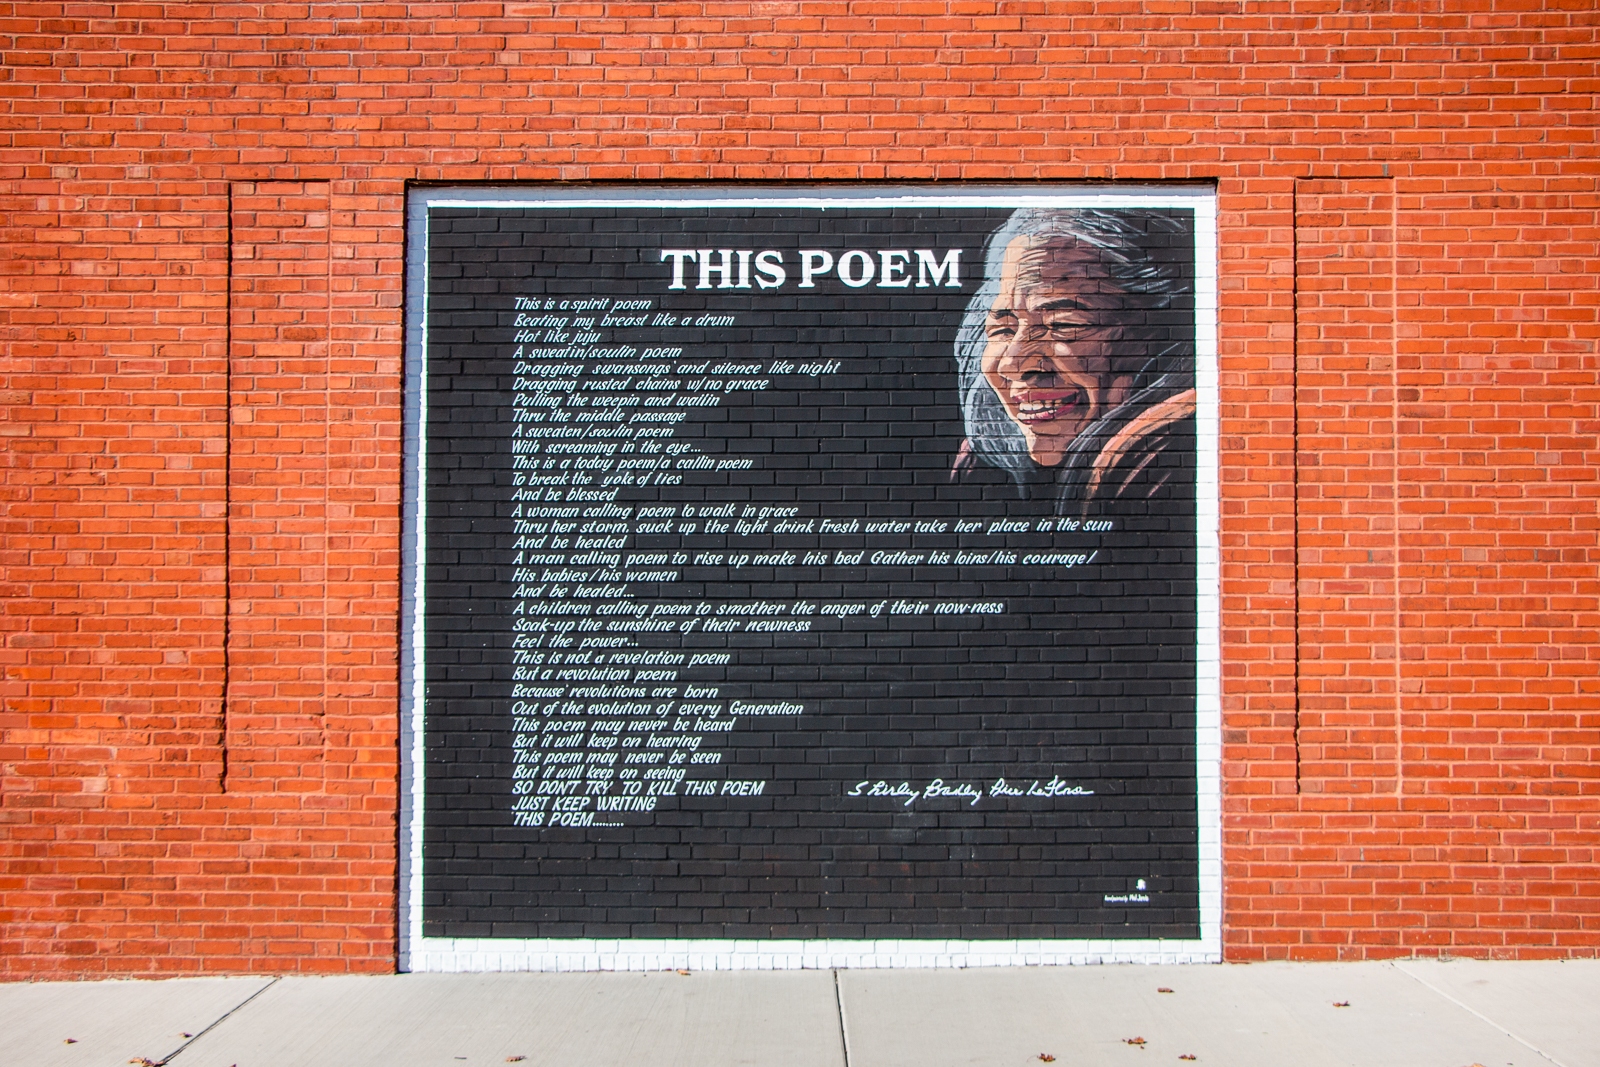 THIS POEM
This is a spirit poem
Beating my breast like a drum
Hot like juju
A sweatin/soulin poem
Dragging swansongs' and silence like night
Dragging rusted chains w/no grace
Pulling the weepin and wailin
Thru the middle passage
A sweaten/soulin poem
With screaming in the eye...
This is a today poem/a callin poem
To break the yoke of ties
And be blessed
A woman calling poem to walk in grace
Thru her storm, suck up the light drink Fresh water take her place in the sun
And be healed
A man calling poem to rise up make his bed Gather his loins/his courage/
His babies/his women
And be healed...
A children calling poem to smother the anger of their now-ness
Soak-up the sunshine of their newness
Feel the power...
This is not a revelation poem
But a revolution poem
Because' revolutions are born
Out of the evolution of every Generation
This poem may never be heard
But it will keep on hearing
This poem may never be seen
But it will keep on seeing
SO DON'T TRY TO KILL THIS POEM
JUST KEEP WRITING
THIS POEM.........
Shirley Bradley LeFlore
Phil Jarvis